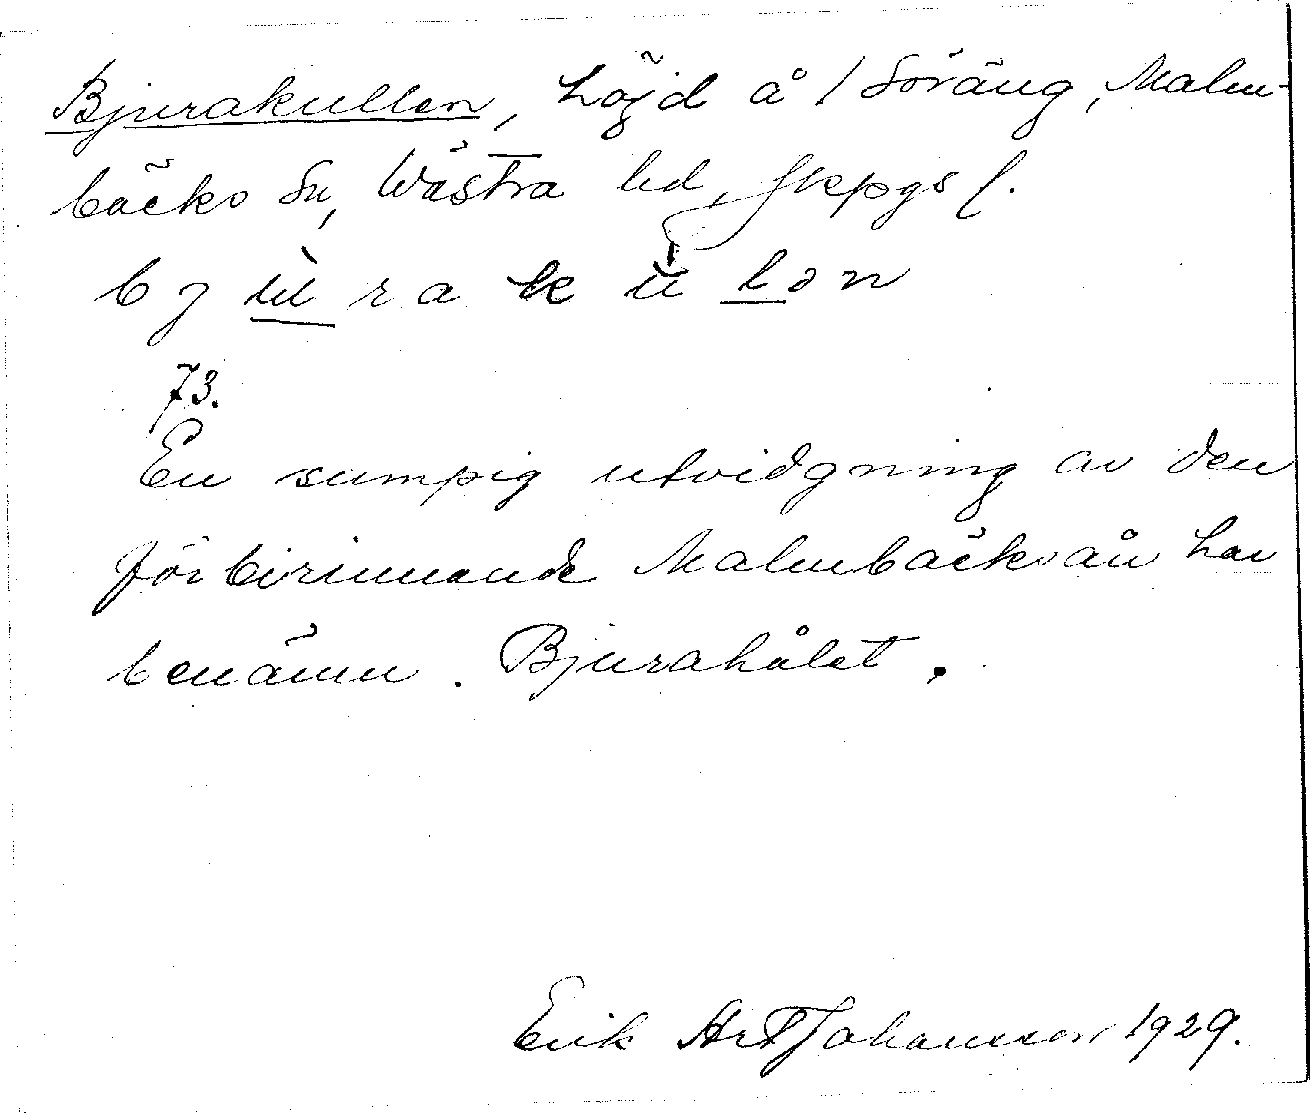 Bjurakullen, höjd å / Söräng, Malm-
bäcks Sn, Västra hd, Jkpgs l.
b j ù r a k ù l ə n
73.
En sumpig utvidgning av den
förbirinnande Malmbäcksån har
benämn. Bjurahålet.
Erik Art Johansson 1929.